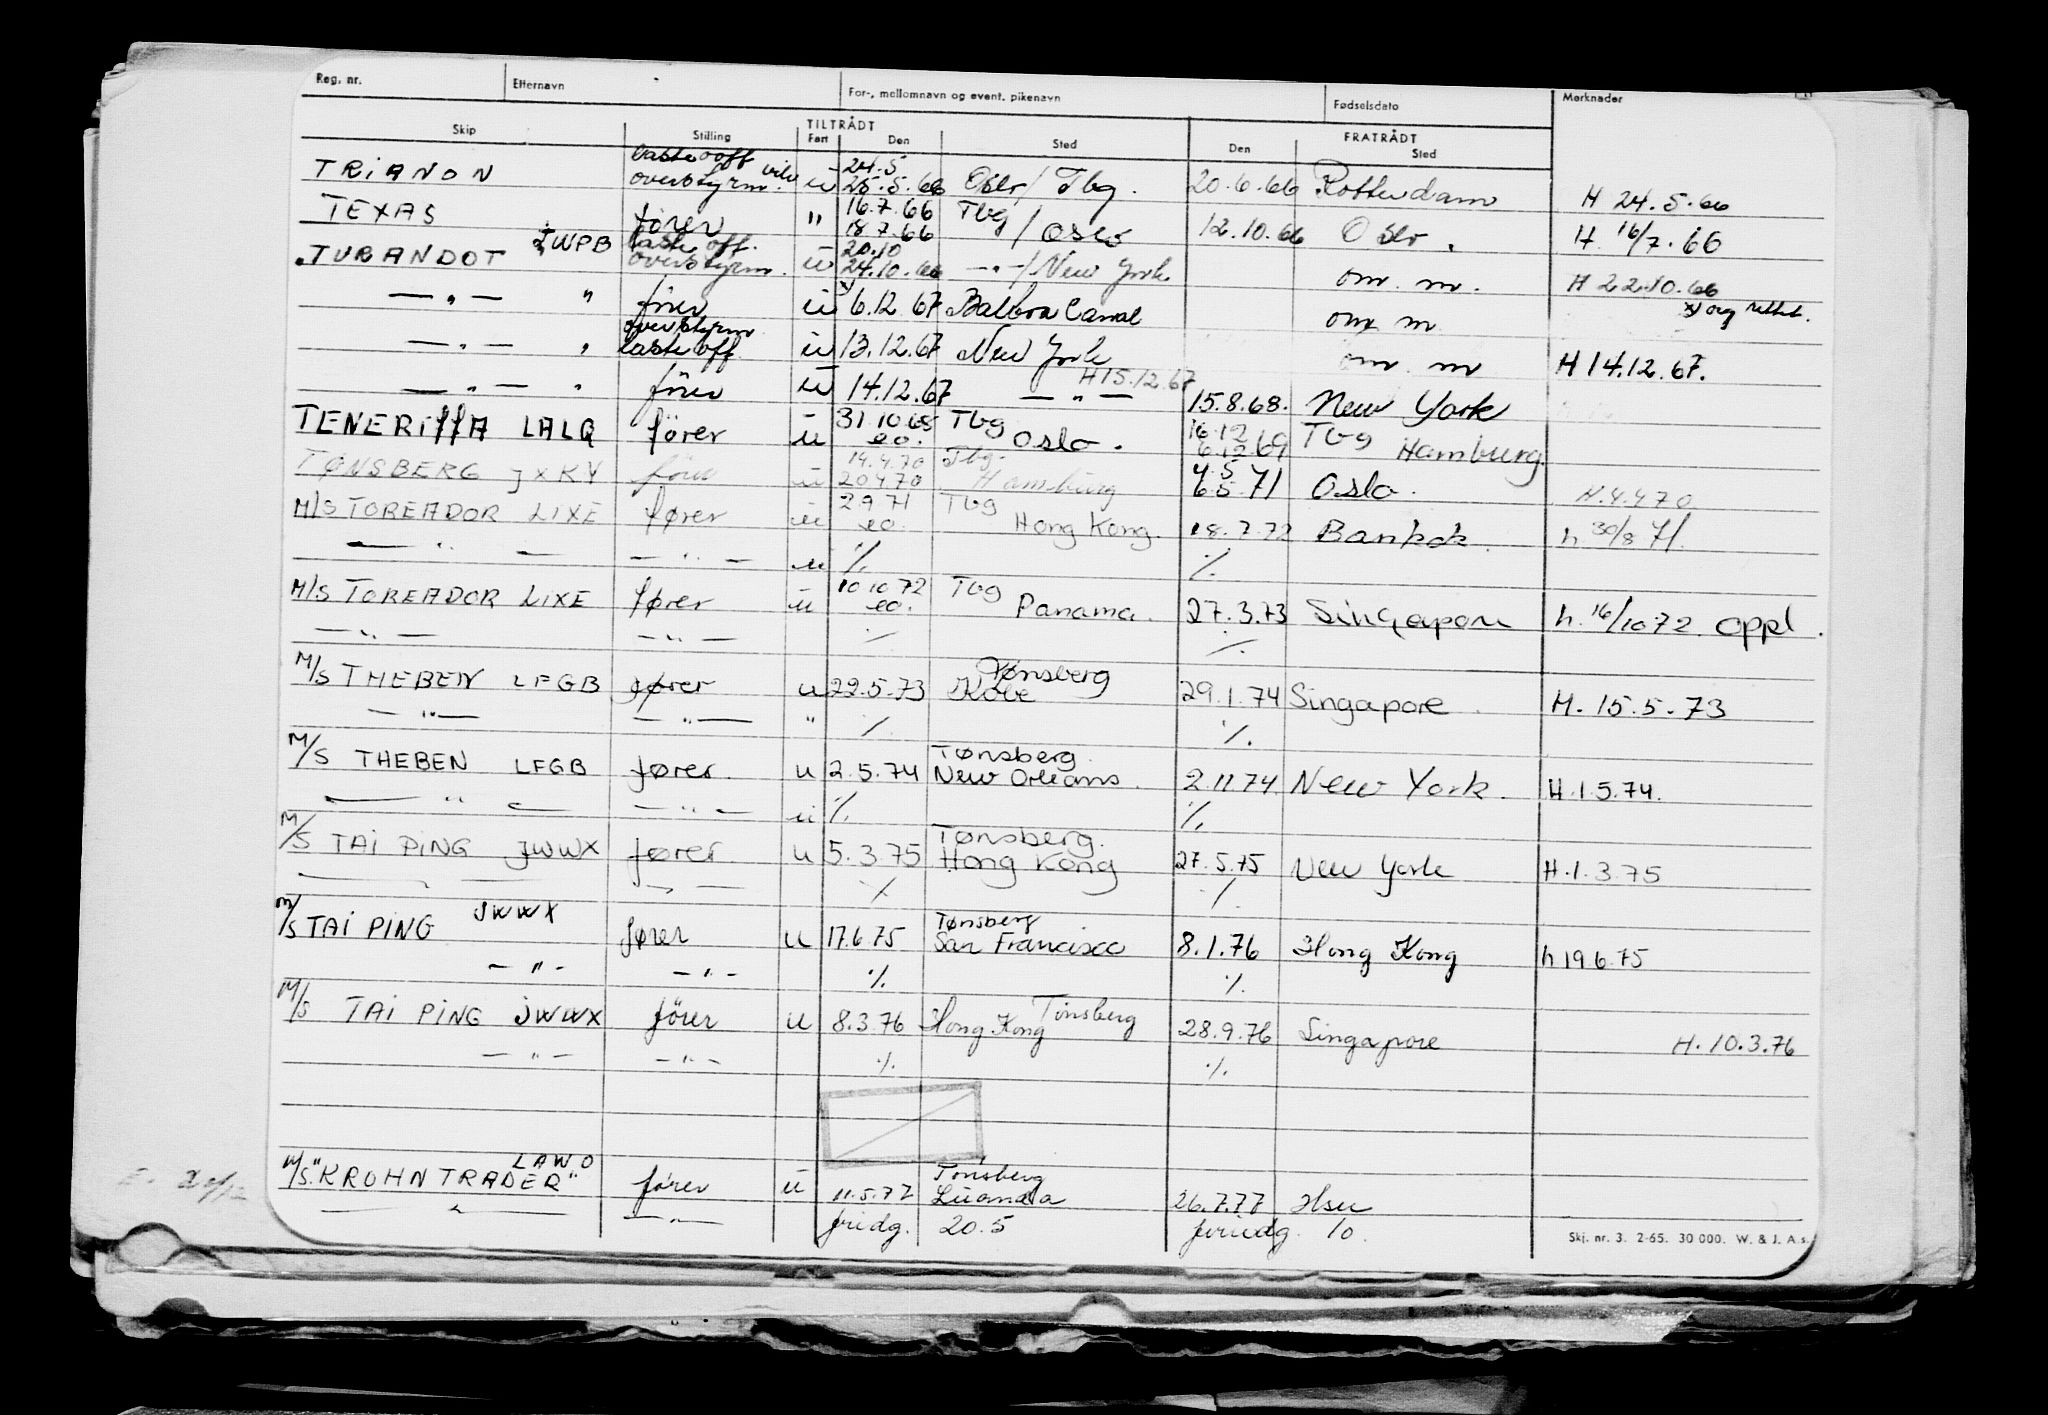 Reg. nr. Etternavn For-, mellomnavn og event. pikenavn Fødselsdato Merknader
TILTRÅDT FRATRÅDT
Skip Stilling Fart Den Sted Den Sted
lasteoff vik 24.5
TRIANON overstyrm. u 25.5.66 Oslo / Tbg. 20.6.66 Rotterdam H 24.5.66
16.7.66 Tbg
TEXAS fører " 18.7.66 / Oslo 12.10.66 Oslo. H. 16/7.66
JWPB laste off. 20.10
TURANDOT overstyrm. u 24.10.66 -"-/ New York om. m. H 22.10.66
— " — " fører u x 6.12.67 Balboa Canal om m x) og rettet.
overstyrm
— " — " laste off u 13.12.67 New York om. m H 14.12.67.
H 15.12.67
— " — " fører u 14.12.67 — " — 15.8.68. New York
31.10.68 Tbg 16.12 Tbg
TENERIFFA LALQ fører u eo. Oslo. 6.12.69 Hamburg.
14.4.70 Tbg. 4.5
TØNSBERG JXKY fører u 20.4.70 Hamburg 6.5.71 Oslo. H.4.4.70
2.9.71 Tbg
M/S TOREADOR LIXE fører u eo. Hong Kong. 18.7.72 Bankok. h. 30/8 71.
— " — — " — u ./. ./.
10.10.72 Tbg
M/S TOREADOR LIXE fører u eo. Panama. 27.3.73 Singapore h. 16/10 72. oppl.
— " — — " — ./. ./.
Tønsberg
M/S THEBEN LFGB fører u 22.5.73 Kobe 29.1.74 Singapore. H. 15.5.73
— " — — " — " ./. ./.
Tønsberg
M/S THEBEN LFGB fører u 2.5.74 New Orleans. 2.11.74 New York. H.1.5.74.
— " — — " — u ./. ./.
Tønsberg.
M/S TAI PING JWWX fører u 5.3.75 Hong Kong 27.5.75 New York H.1.3.75
— " — — " — ./. ./.
JWWX Tønsberg
M/S TAI PING fører u 17.6.75 San Francisco 8.1.76 Hong Kong h 19.6.75
— " — — " — ./. ./.
Tønsberg
M/S TAI PING JWWX fører u 8.3.76 Hong Kong 28.9.76 Singapore H. 10.3.76
— " — — " — ./. ./.
LAWO Tønsberg
M/S. "KROHN TRADER" fører u 11.5.77 Luanda 26.7.77 Hsu
— " — — " — fridg. 20.5 feriedg. 10.
Skj. nr. 3. 2-65. 30 000. W. & J. A.s.